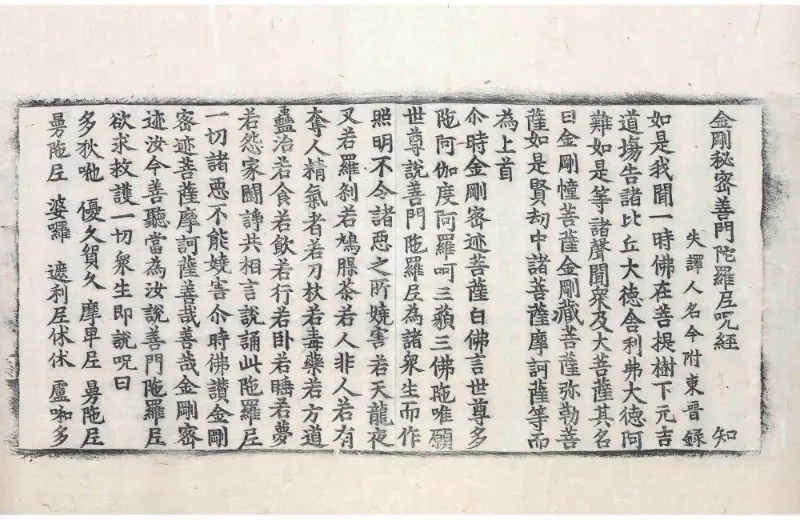 金剛秘密善門陀羅尼呪經 知
失譯人名今附東晉録
如是我聞一時佛在菩提樹下元吉
道場告諸比丘大德舍利弗大德阿
難如是等諸聲聞衆及大菩薩其名
曰金剛幢菩薩金剛藏菩薩弥勒菩
薩如是賢劫中諸菩薩摩訶薩等而
為上首
尒時金剛密迹菩薩白佛言世尊多
陁阿伽度阿羅呵三藐三佛陁唯願
世尊說善門陁羅尼為諸衆生而作
照明不令諸惡之所嬈害若天龍夜
叉若羅刹若鳩腪茶若人非人若有
奪人精氣者若刀杖若毒藥若方道
蠱治若食若飲若行若卧若睡若夢
若怨家鬪諍共相言說誦此陁羅尼
一切諸惡不能嬈害尒時佛讃金剛
密迹菩薩摩訶薩善哉善哉金剛密
迹汝今善聽當為汝說善門陁羅尼
欲求救護一切衆生即說呪曰
多狄吔 優久賀久 摩卑尼 㝵陁尼
㝵陁尼 婆囉 遮利尼休休 盧呴多